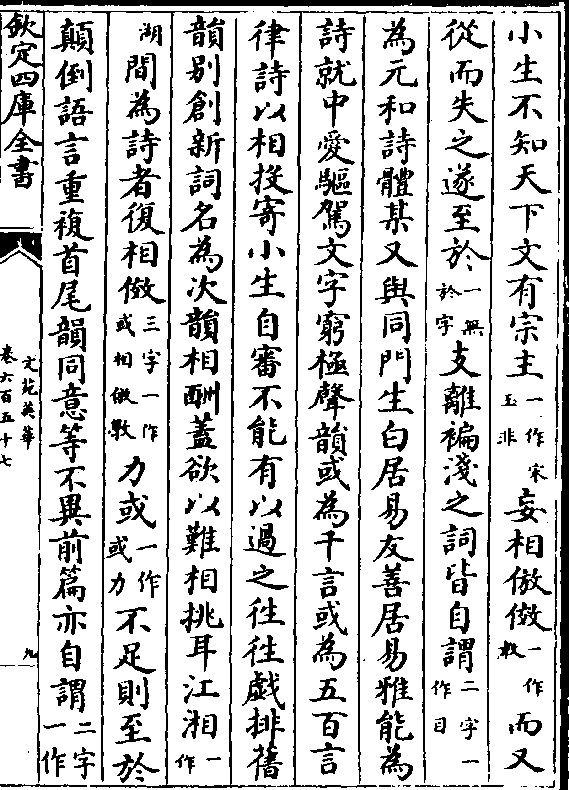 小生不知天下文有宗主一作宋玉非妄相倣傚一作教而又
從而失之遂至於一無於字支離褊淺之詞皆自謂二字一作目
為元和詩體某又與同門生白居易友善居易雅能為
詩就中愛驅駕文字窮極聲韻或為千言或為五百言
律詩以相投寄小生自審不能有以過之徃徃戯排舊
韻别創新詞名為次韻相酬蓋欲以難相挑耳江湘一作
湖間為詩者復相倣三字一作或相倣斆力或一作或力不足則至於
顛倒語言重複首尾韻同意等不異前篇亦自謂二字一作
欽定四庫全書
文苑英華
卷六百五十七
九